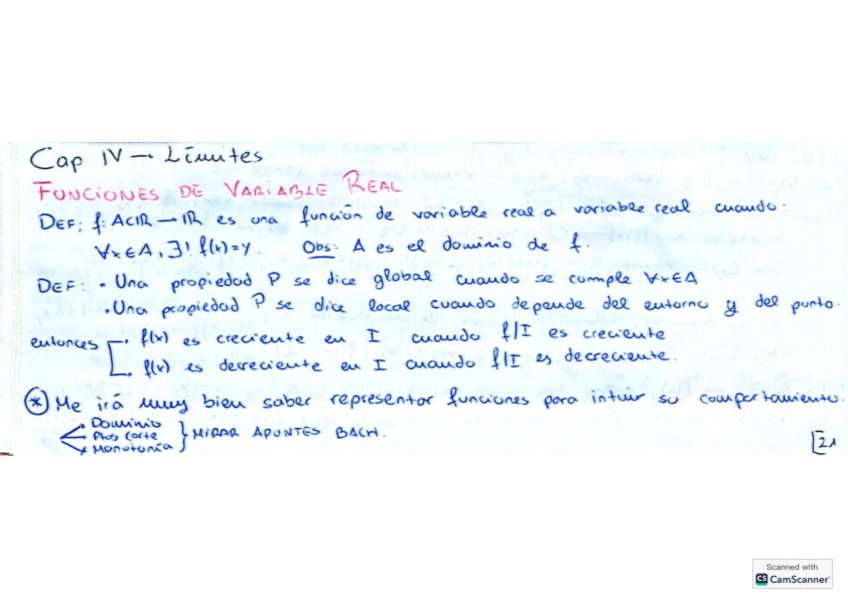 Cap IV → Límites
FUNCIONES DE VARIABLE REAL
DEF: f: A⊂ℝ → ℝ es una función de variable real a variable real cuando:
∀x∈A, ∃! f(x)=y. Obs: A es el dominio de f.
DEF: • Una propiedad P se dice global cuando se cumple ∀x∈A
• Una propiedad P se dice local cuando depende del entorno y del punto.
entonces → f(x) es creciente en I cuando f|I es creciente
→ f(x) es decreciente en I cuando f|I es decreciente.
(*) Me irá muy bien saber representar funciones para intuir su comportamiento.
Dominio
Ptos Corte } MIRAR APUNTES BACH.
Monotonía
21
Scanned with
CS CamScanner